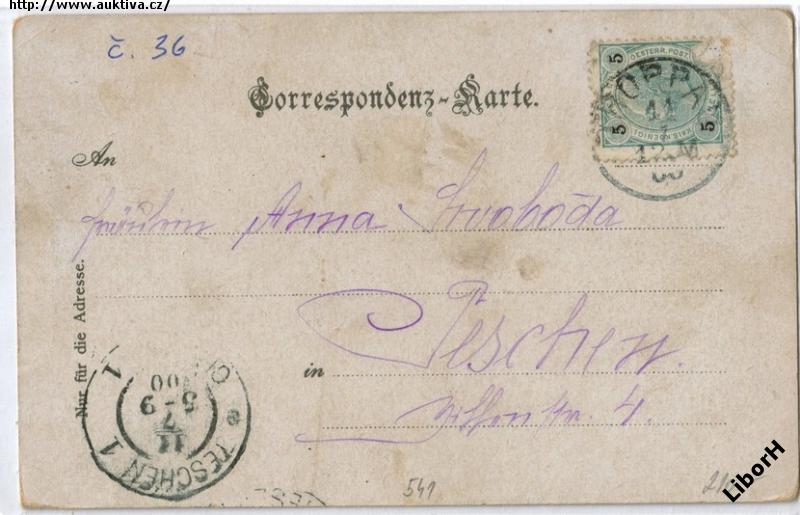 http://www.auktiva.cz/
č. 36
Correspondenz-Karte.
5
OESTERR. POST
5 5
TROPPAU
11
12-M
00
An
Fräulein Anna Svoboda
Nur für die Adresse.
in Teschen.
str. 4.
TESCHEN 1
11
7
5-9
00
541
LiborH